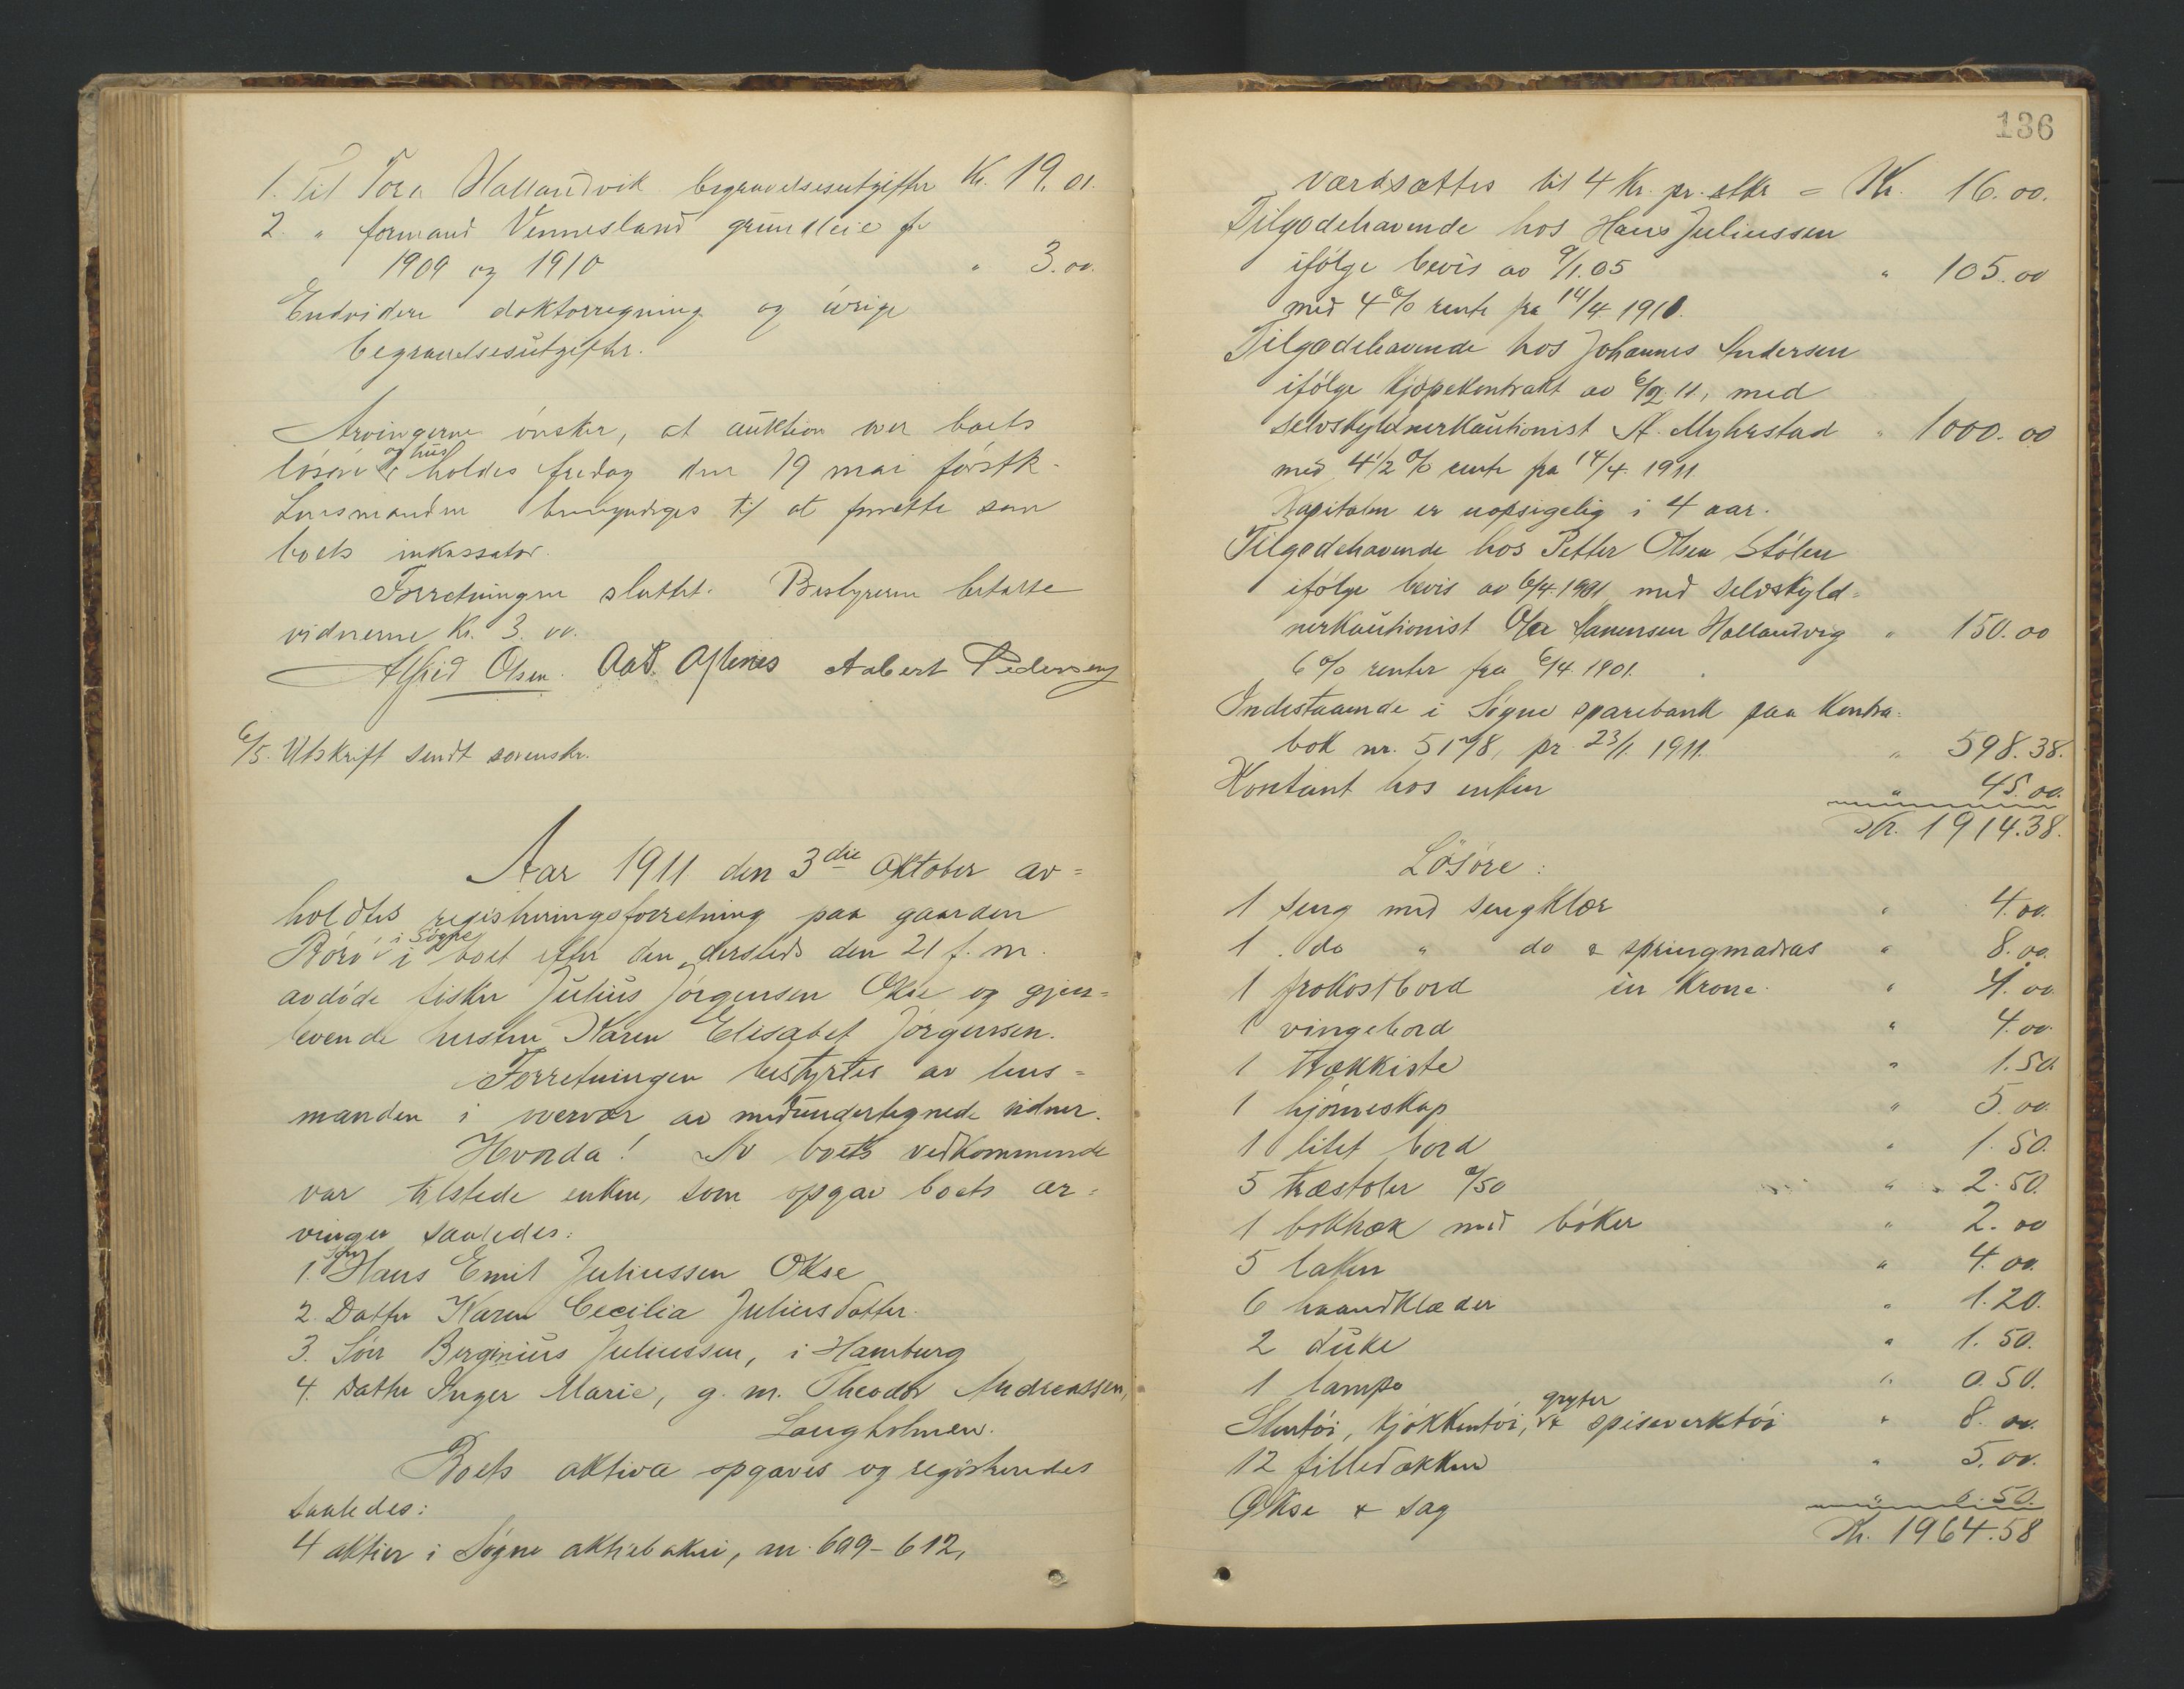 1. Til Tora Hallandvik begravelsesutgifter Kr. 19.01.
2. " formand Vennesland grundleie for
1909 og 1910 " 3.00.
Endvidere doktorregning og øvrige
begravelsesutgifter.
Arvingerne ønsker, at auktion over boets
løsøre og hus holdes fredag den 19 mai førstk.
Lensmanden bemyndiges til at forrette som
boets inkassator.
Forretningen sluttet. Bestyreren betalte
vidnerne Kr. 3.00.
Alfred Olsen. Aabert Pedersen
6/5. Utskrift sendt sorenskr.
Aar 1911 den 3die oktober av=
holdtes registreringsforretning paa gaarden
Borø i Søgne i boet efter den dersteds den 21 f.m.
avdøde fisker Julius Jørgensen Okse og gjen=
levende hustru Karen Elisabet Jørgensen.
Forretningen bestyrtes av lens=
manden i overvær av medundertegnede vidner.
Hvorda! Av boets vedkommende
var tilstede enken, som opgav boets ar=
vinger saaledes:
1. Søn Hans Emil Juliussen Okse
2. Datter Karen Cecilia Juliusdatter.
3. Søn Berginius Juliussen, i Hamburg
4. Datter Inger Marie, g. m. Theodor Andreassen,
Langholmen.
Boets aktiva opgaves og registreredes
saaledes:
4 aktier i Søgne aktiebakeri, nr. 609-612,
136
værdsættes til 4 Kr. pr. stk = Kr. 16.00.
Tilgodehavende hos Hans Juliussen
ifølge bevis av 9/1.05 " 105.00
med 4 % rente fra 14/4 1910.
Tilgodehavende hos Johannes Andersen
ifølge kjøpekontrakt av 6/2.11, med
selvskyldnerkautionist A. Myhrstad " 1000.00
med 4 1/2 % rente fra 14/4. 1911.
Kapitalen er uopsigelig i 4 aar.
Tilgodehavende hos Petter Olsen Stølen
ifølge bevis av 6/4.1901 med selvskyld=
nerkautionist Hallandvig " 150.00
6 % renter fra 6/4 1901.
Indestaaende i Søgne sparebank paa kontra=
bok nr. 5178, pr. 23/1. 1911. " 598.38.
Kontant hos enken " 45.00.
Kr. 1914.38.
Løsøre:
1 seng med sengklær " 4.00.
1 do " do & springmadras " 8.00.
1 frokostbord en krone " 1.00
1 vingebord " 4.00.
1 trækkiste " 1.50.
1 hjørneskap " 5.00.
1 litet bord " 1.50.
5 træstoler a/50 " 2.50.
1 bokhæk med bøker " 2.00
5 laken " 4.00.
6 haandklæder " 1.20.
2 duke " 1.50.
1 lampe " 0.50.
Stentøi, kjøkkentøi, gryter & spiseverktøi " 8.00.
12 filledækken " 5.00.
Økse & sag " 0.50.
Kr. 1964.58